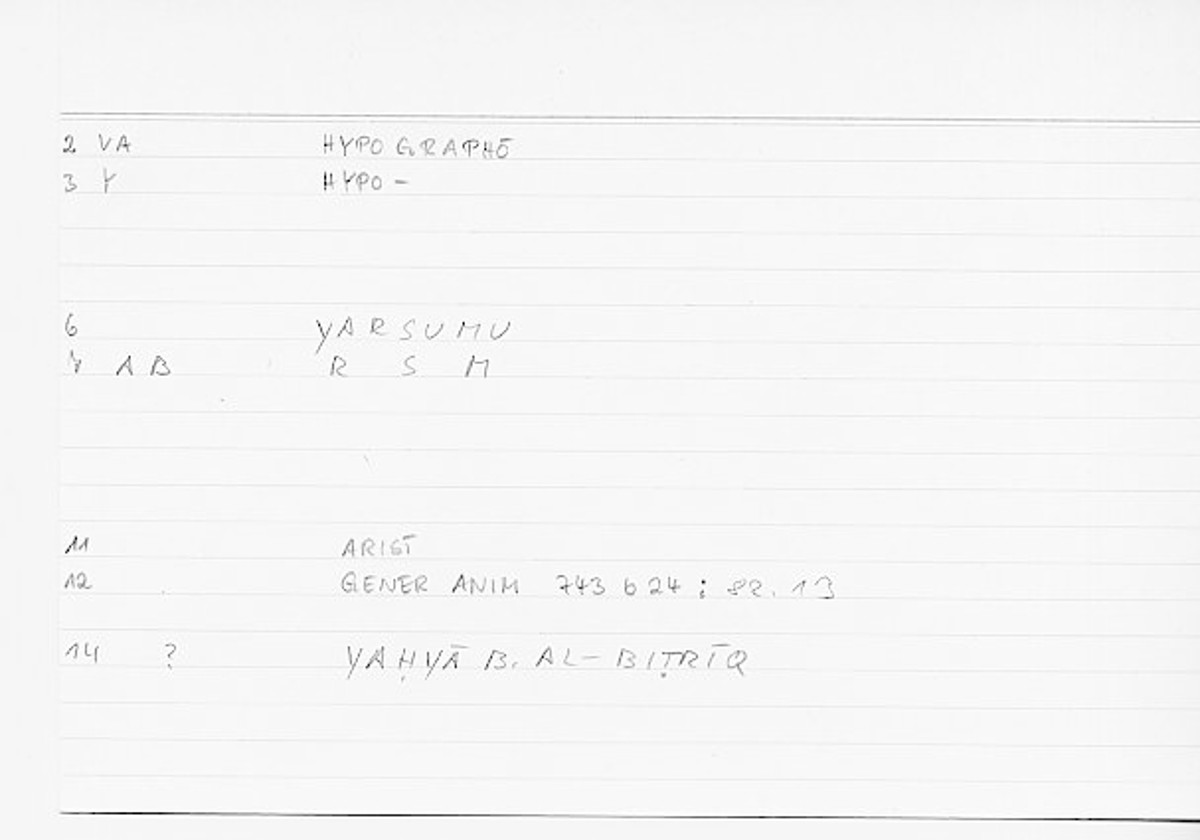 2 VA HYPOGRAPHŌ
3 Y HYPO-
6 YARSUMU
7 AB R S M
11 ARIST
12 GENER ANIM 743 b 24 ; 82. 13
14 ? YAḤYĀ B. AL-BIṬRĪQ